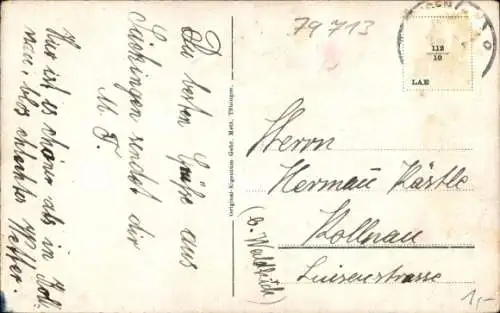 79 713
INGEN
112
10
LAE
Die besten Grüße aus
Säckingen sendet dir
M. F.
Hier ist es schöner als in Koll
nau, blos schlechter Wetter.
Original-Eigentum Gebr. Metz, Tübingen.
Herrn
Hermann Kästle
Kollnau
(b. Waldkirch)
Luisenstrasse
1,-